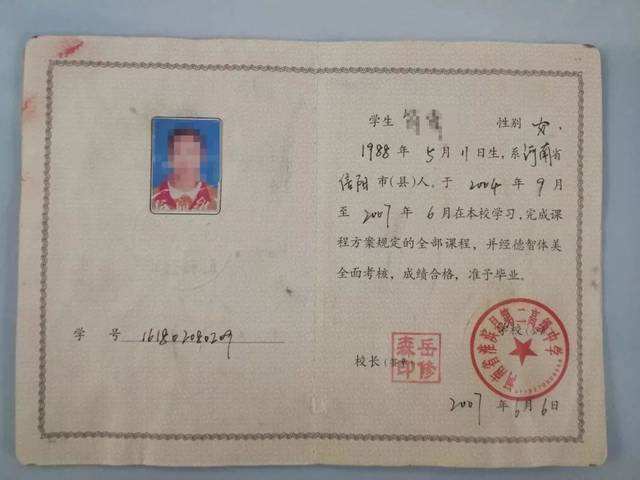 学生 性别 女.
1988 年 5 月 11 日生，系 河南 省
信阳 市（县）人，于 2004 年 9 月
至 2007 年 6 月在本校学习，完成课
程方案规定的全部课程，并经德智体美
全面考核，成绩合格，准予毕业。
学 号 161802080209
学校
河南省淮滨县第二高级中学
校长
岳修森印
2007 年 6 月 6 日